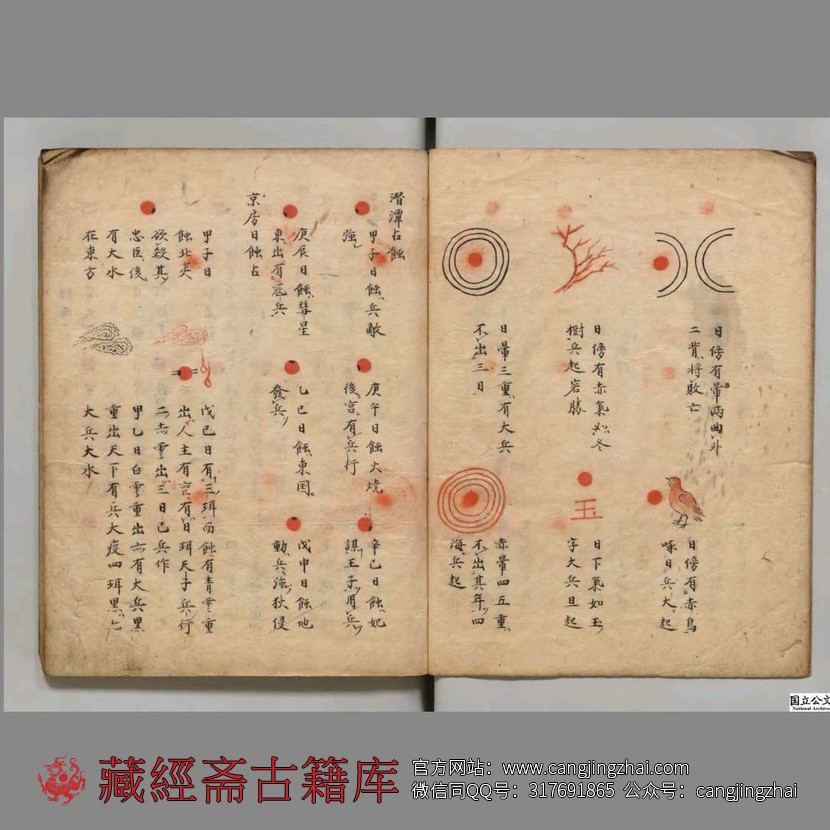 日傍有暈両曲外
二背将敗亡
日傍有赤烏
啄日兵大起
日傍有赤氣必冬
樹兵起客勝
玉
日下氣如玉
字大兵且起
日暈三重有大兵
不出三日
赤暈四五重
不出其年四
海兵起
潜潭占蝕
甲子日蝕兵敵
強
庚午日蝕火燒
後宮有兵行
辛巳日蝕妃
謀王子用兵
庚辰日蝕彗星
東出有兵
乙巳日蝕東国
發兵
戊申日蝕地
動兵強狄侵
京房日蝕占
甲子日
蝕北夷
欲殺其
忠臣後
有大水
在東方
戊巳日有三珥而蝕有青雲重
出人主有日珥天子兵行
二雲出三日已兵作
甲乙日白雲重出有大兵黒
重出天下有兵大疫四珥黒
大兵大水
国立公文
National Archives
藏經斋古籍库
官方网站：www.cangjingzhai.com
微信同QQ号：317691865 公众号：cangjingzhai